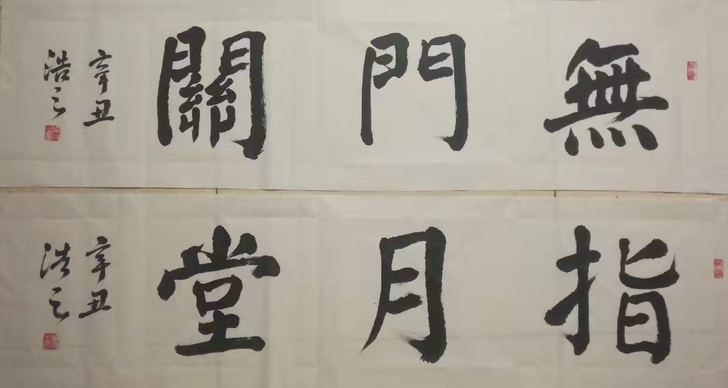 無門關
辛丑
浩之
指月堂
辛丑
浩之